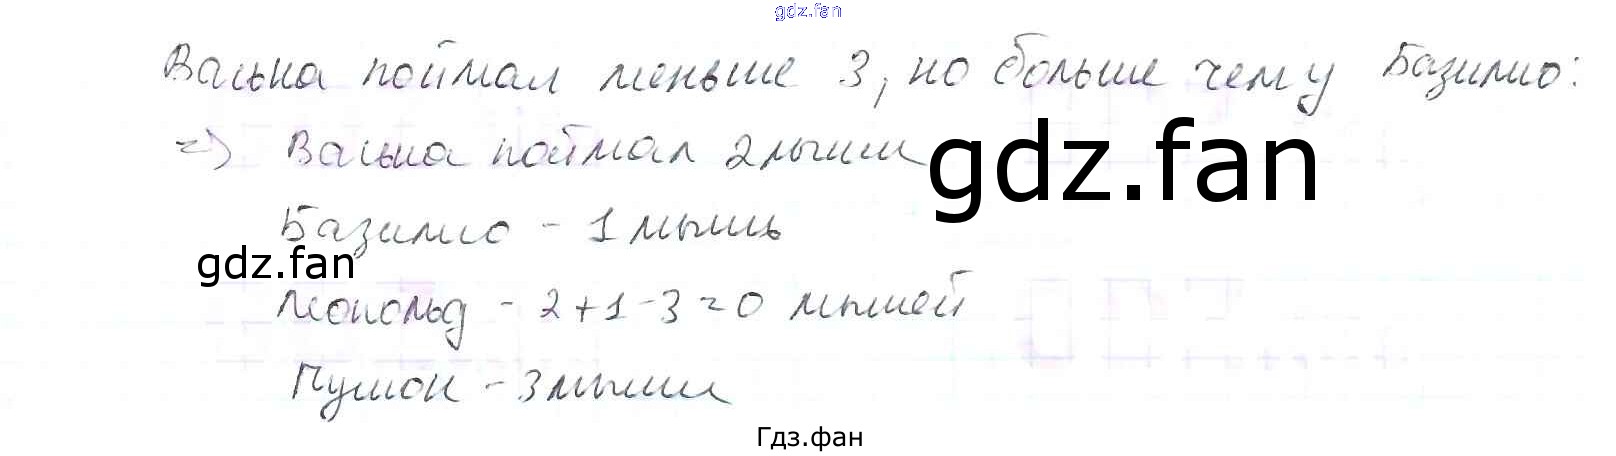 gdz.fan
Васька поймал меньше 3, но больше чем у Базилио:
=> Васька поймал 2 мыши
gdz.fan
Базилио - 1 мышь
gdz.fan
Леопольд - 2+1-3=0 мышей
Пушок - 3 мыши
Гдз.фан